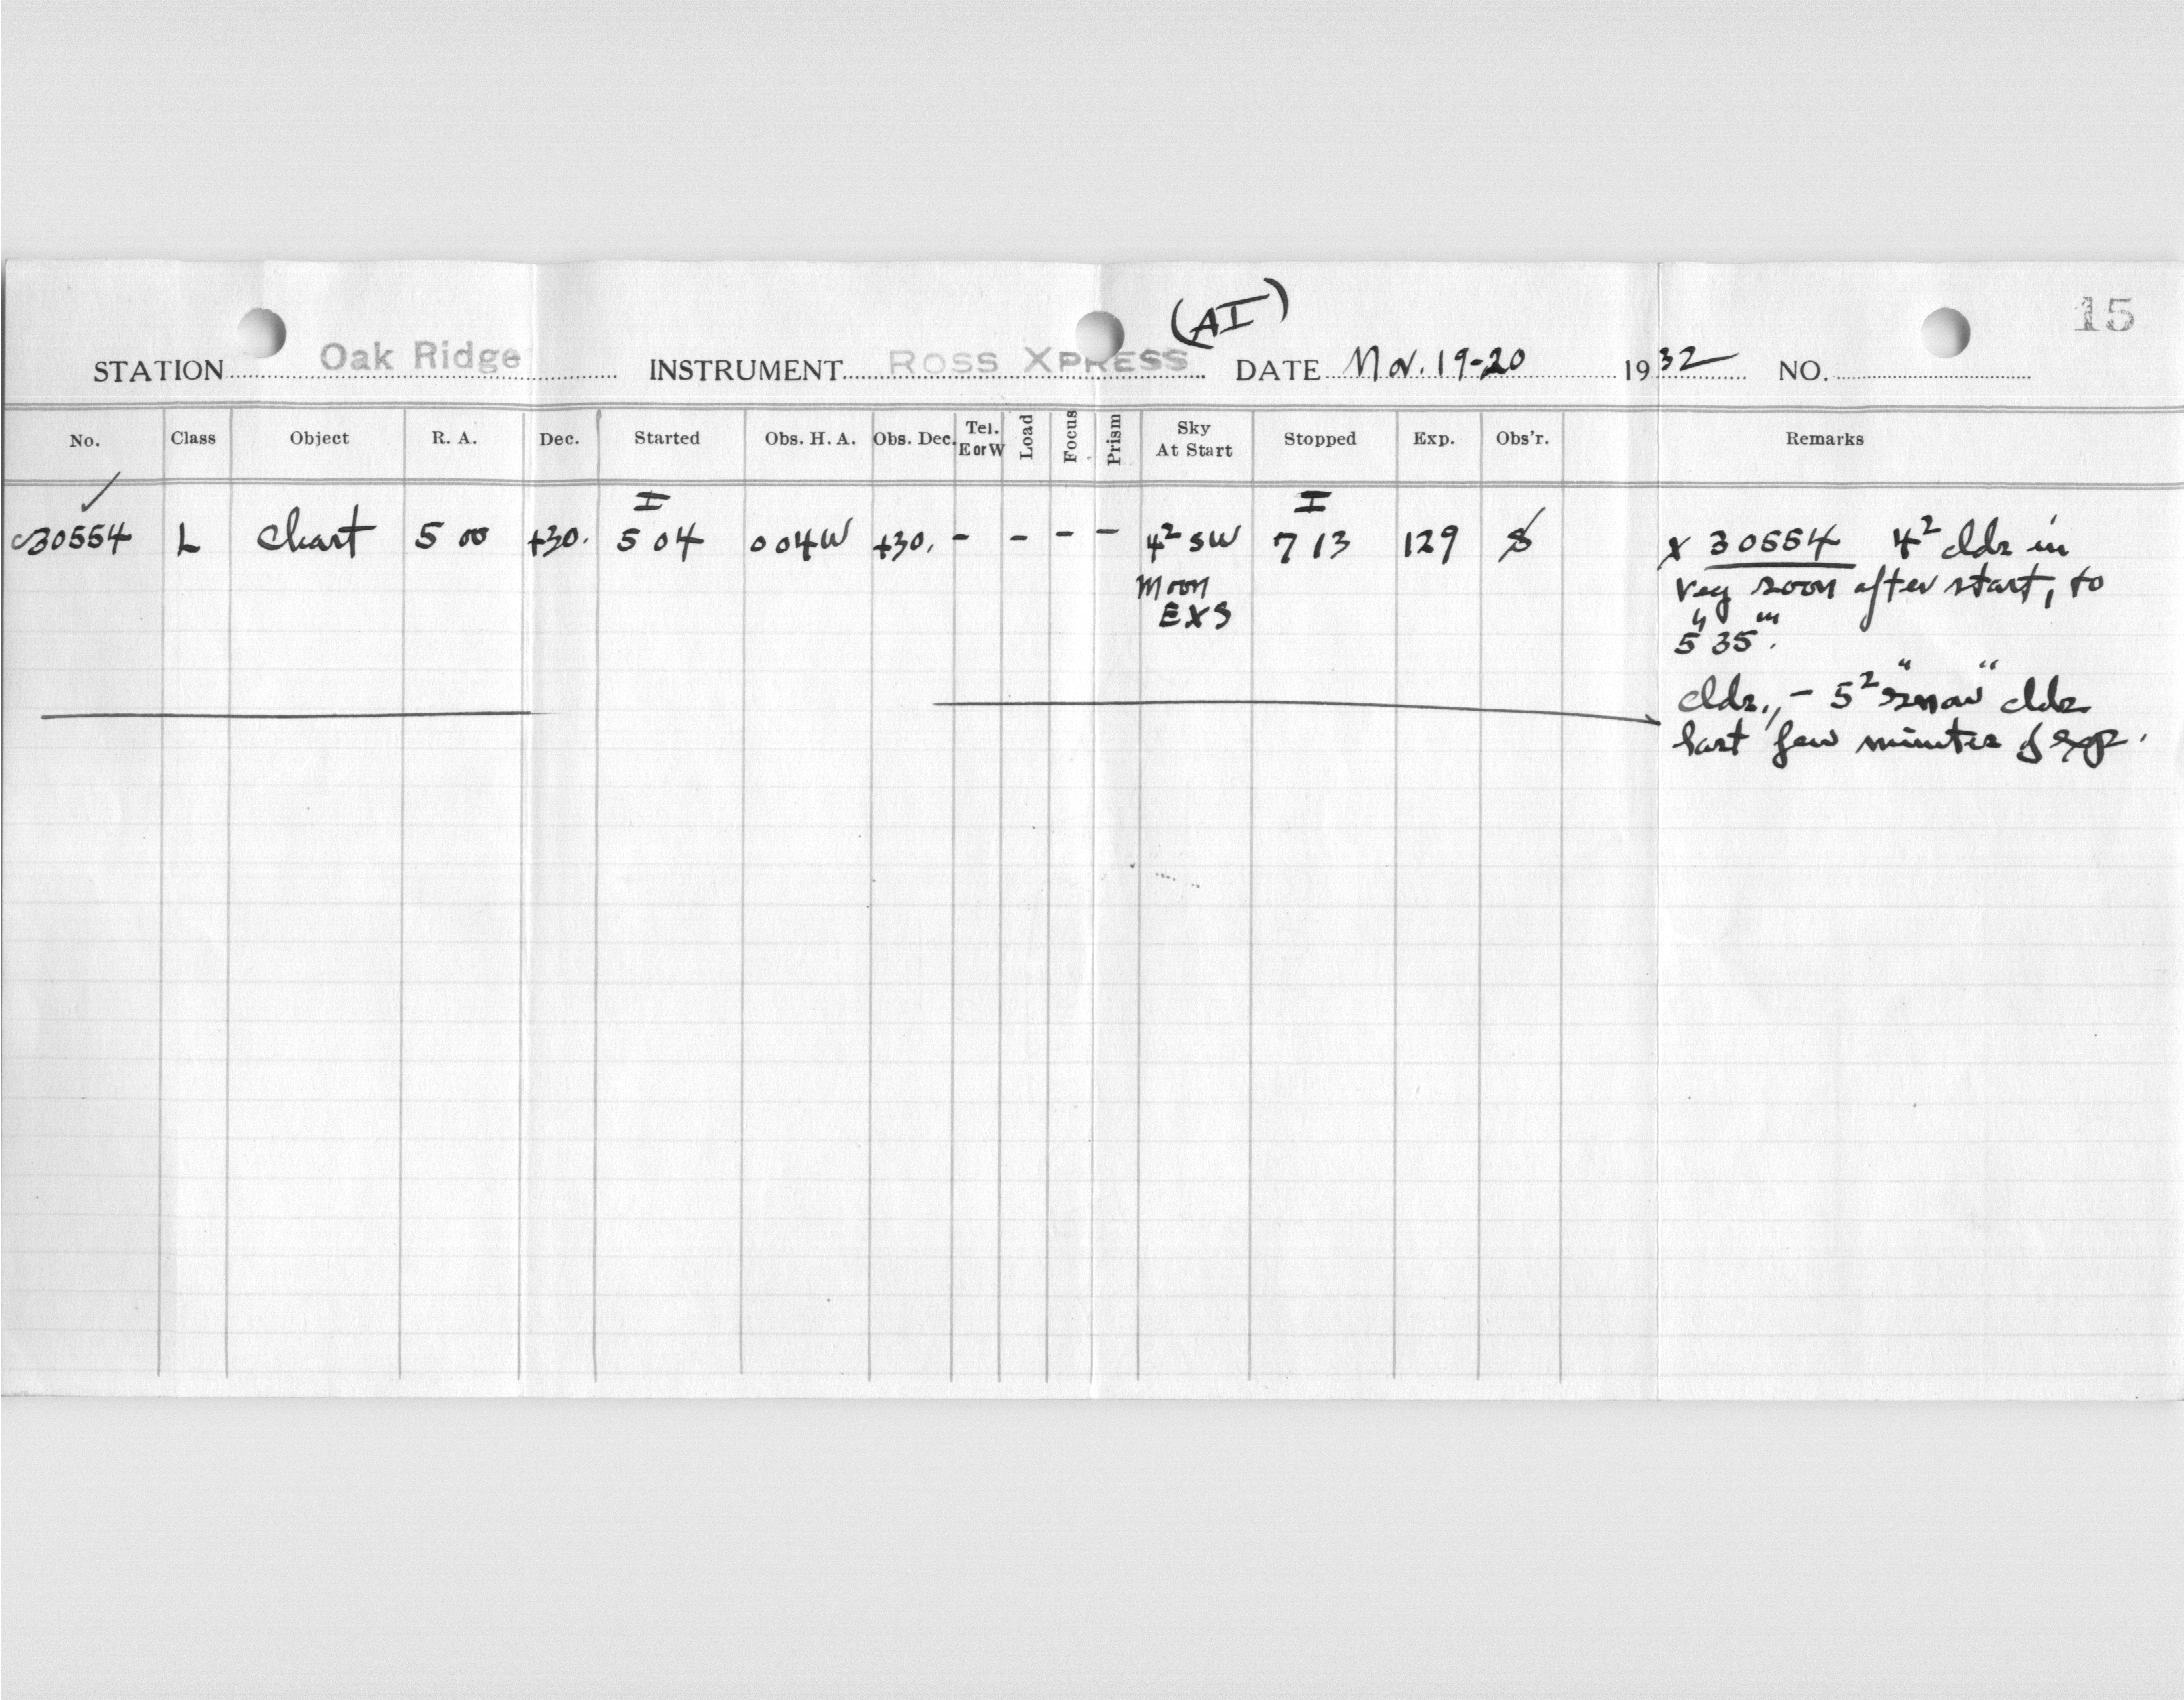 (AI)
15
STATION Oak Ridge INSTRUMENT ROSS XPRESS DATE Nov. 19-20 1932 NO.
No. Class Object R. A. Dec. Started Obs. H. A. Obs. Dec. Tel. E or W Load Focus Prism Sky At Start Stopped Exp. Obs'r. Remarks
I I
30554 L Chart 5 00 +30. 5 04 0 04W +30. - - - - 4² SW 7 13 129 S X 30554 4² clds in
Moon reg soon after start, to
EXS 5ʰ 35ᵐ.
clds., - 5² "snow" clds
last few minutes of exp.